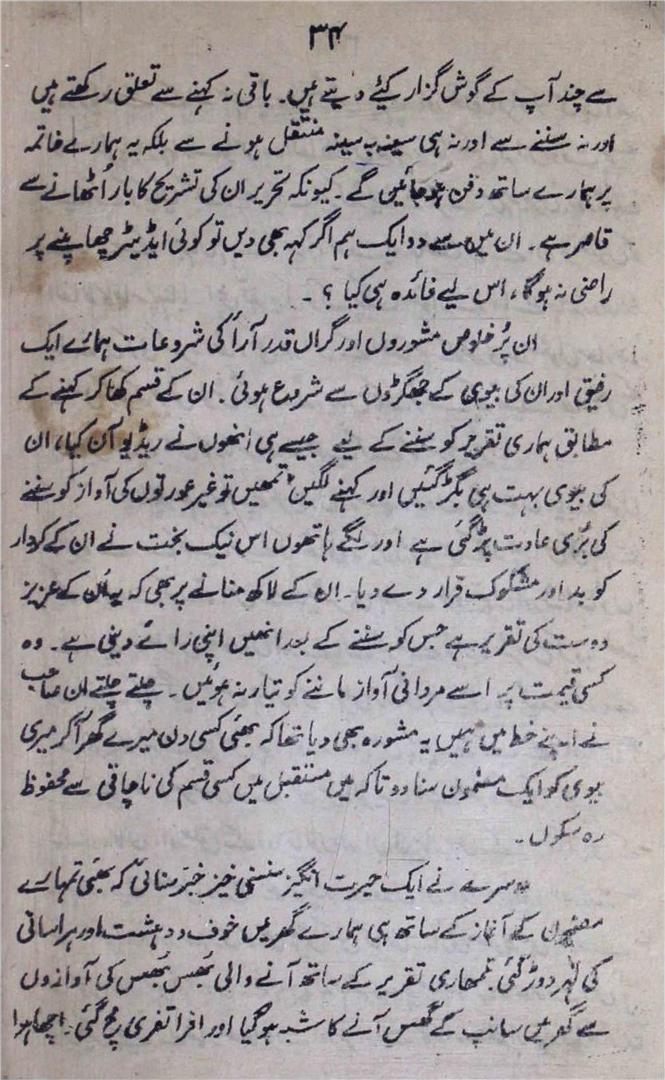 ۳۴
سے چند آپ کے گوش گزار کیئے دیتے ہیں۔ باقی نہ کہنے سے تعلق رکھتے ہیں
اور نہ سننے سے اور نہ ہی سینہ بہ سینہ منتقل ہونے سے بلکہ یہ ہمارے خاتمہ
پر ہمارے ساتھ دفن ہو جائیں گے۔ کیونکہ تحریر ان کی تشریح کا بار اُٹھانے سے
قاصر ہے۔ ان میں سے دو ایک ہم اگر کہہ بھی دیں تو کوئی ایڈیٹر چھاپنے پر
راضی نہ ہوگا، اس لیے فائدہ ہی کیا ؟ ۔
ان پُر خلوص مشوروں اور گراں قدر آرا کی شروعات ہمارے ایک
رفیق اور ان کی بیوی کے جھگڑوں سے شروع ہوئی۔ ان کے قسم کھا کر کہنے کے
مطابق ہماری تقریر کو سننے کے لیے جیسے ہی انھوں نے ریڈیو آن کیا، ان
کی بیوی بہت ہی بگڑ گئیں اور کہنے لگیں تمھیں تو غیر عورتوں کی آواز کو سننے
کی بُری عادت پڑ گئی ہے اور لگے ہاتھوں اس نیک بخت نے ان کے کردار
کو بد اور مشکوک قرار دے دیا۔ ان کے لاکھ منانے پر بھی کہ یہ اُن کے عزیز
دوست کی تقریر ہے جس کو سننے کے بعد انھیں اپنی رائے دینی ہے۔ وہ
کسی قیمت پر اسے مردانی آواز ماننے کو تیار نہ ہوئیں۔ چلتے چلتے ان صاحب
نے اپنے خط میں ہمیں یہ مشورہ بھی دیا تھا کہ بھئی کسی دن میرے گھر آکر میری
بیوی کو ایک مضمون سنا دو تاکہ میں مستقبل میں کسی قسم کی ناچاقی سے محفوظ
رہ سکوں۔
دوسرے نے ایک حیرت انگیز سنسنی خیز خبر سنائی کہ بھئی تمہارے
مضمون کے آغاز کے ساتھ ہی ہمارے گھر میں خوف و دہشت اور ہراسانی
کی لہر دوڑ گئی۔ تمھاری تقریر کے ساتھ آنے والی بھس بھس کی آوازوں
سے گھر میں سانپ کے گھس آنے کا شبہ ہو گیا اور افراتفری مچ گئی۔ اچھا ہوا